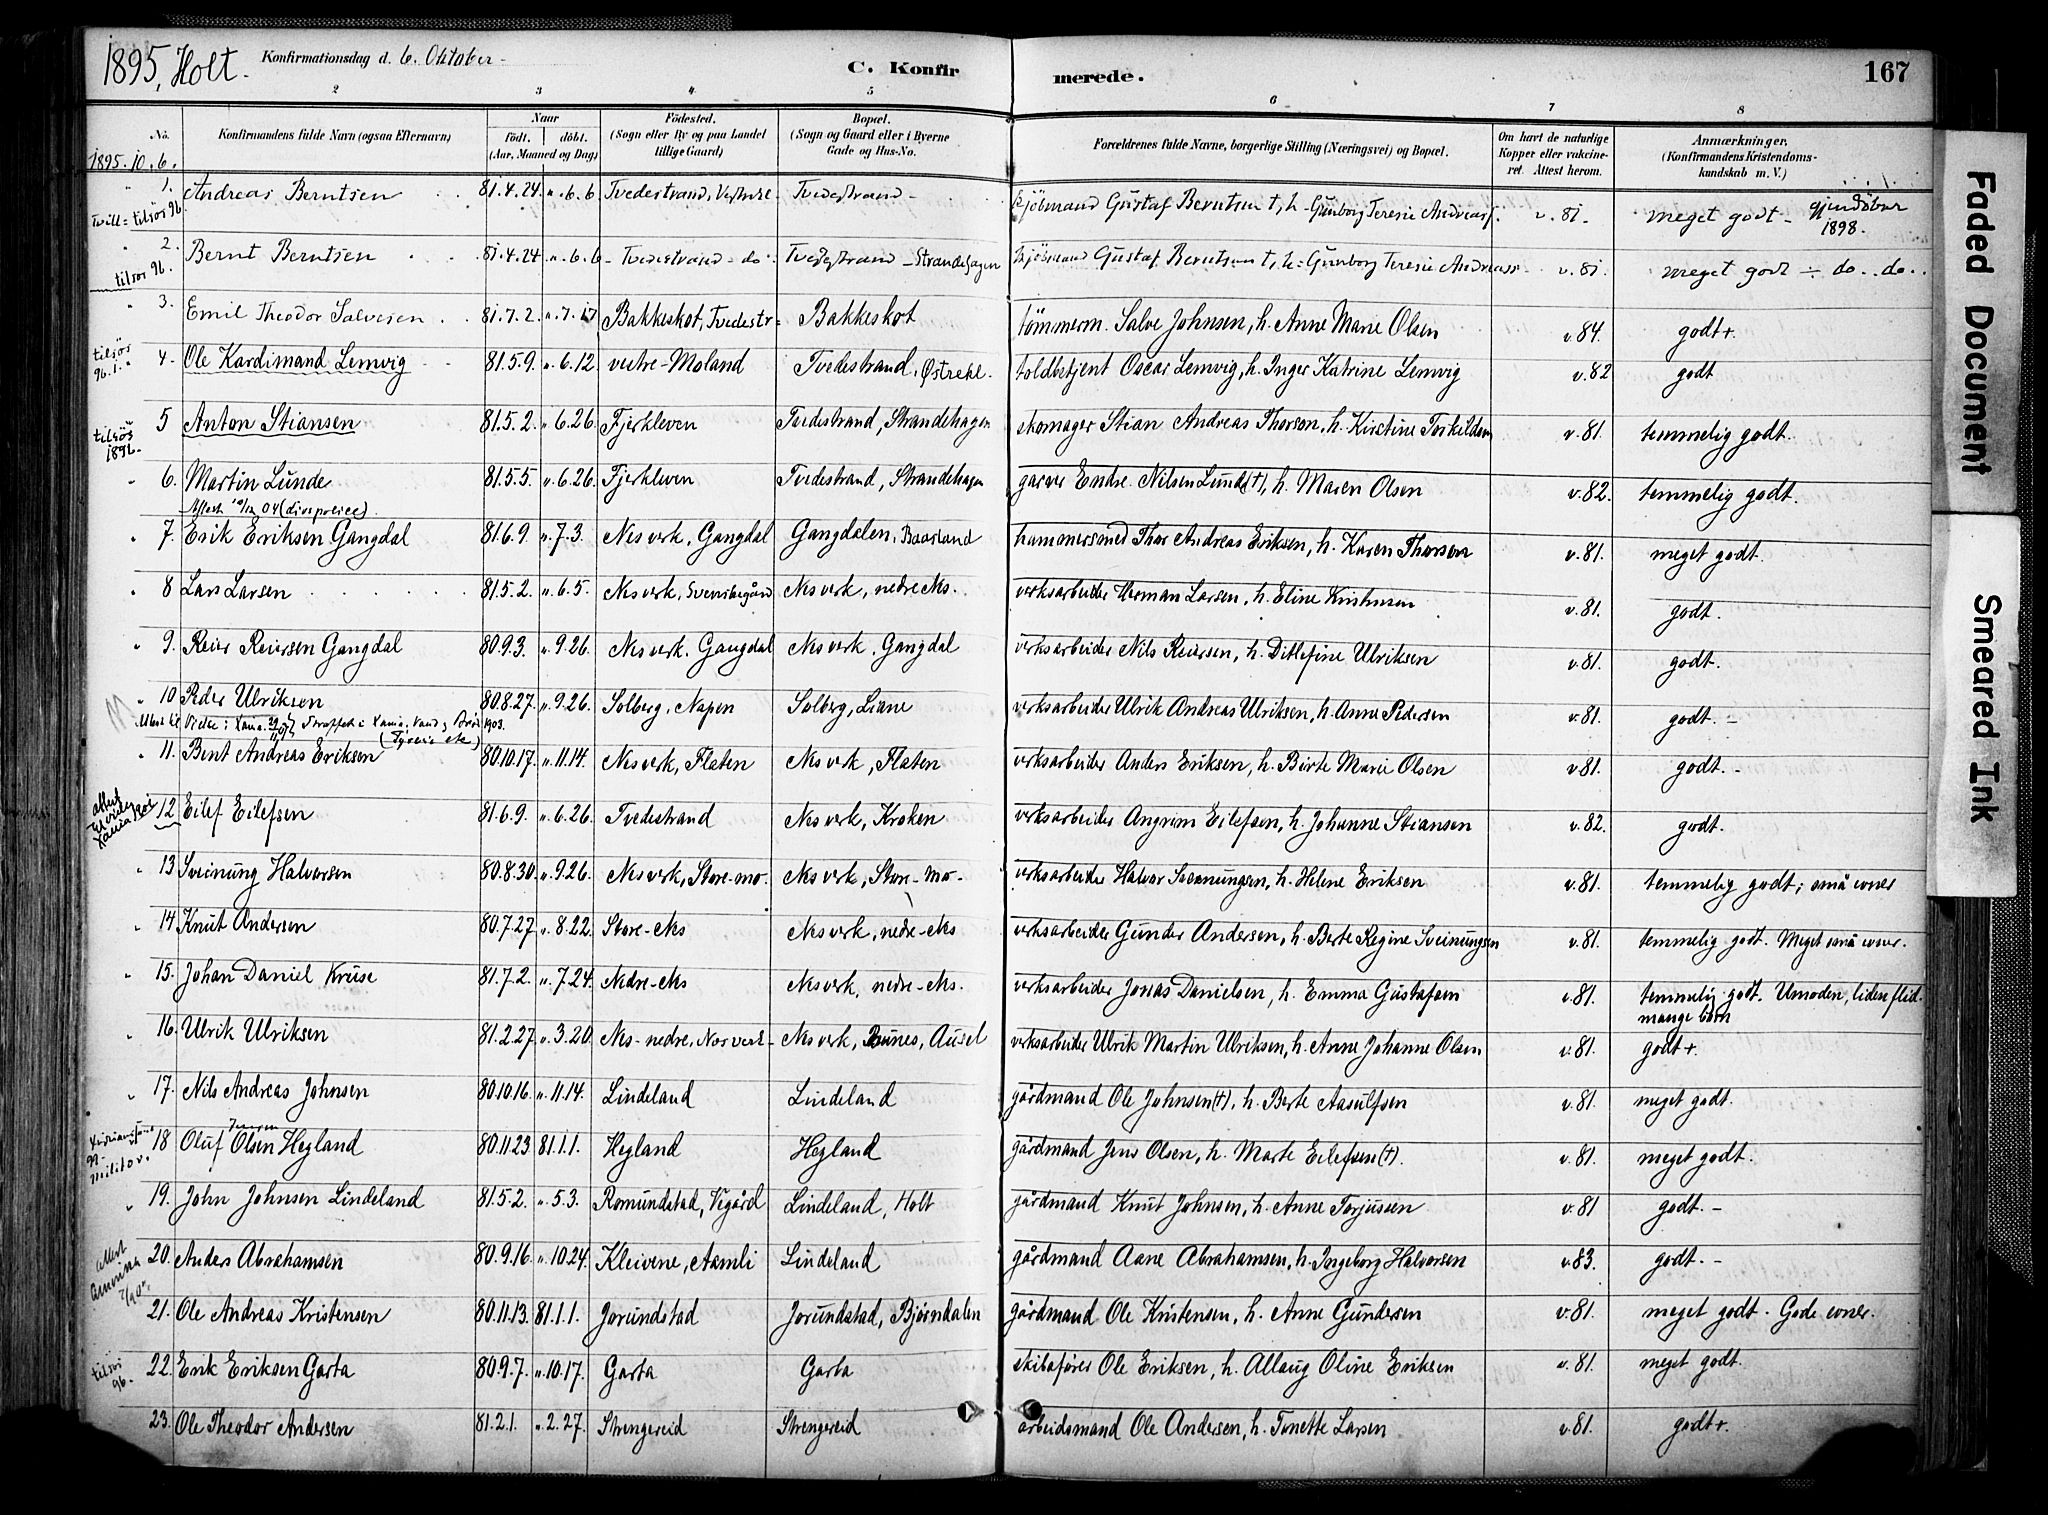 1895, Holt. Konfirmationsdag d. 6. Oktober - C. Konfirmerede. 167
2 3 4 5 6 7 8
No. Konfirmandens fulde Navn (ogsaa Efternavn) Naar født. døbt. (Aar, Maaned og Dag) Fødested. (Sogn eller By og paa Landet tillige Gaard) Bopæl. (Sogn og Gaard eller i Byerne Gade og Hus-No. Forældrenes fulde Navne, borgerlige Stilling (Næringsvei) og Bopæl. Om havt de naturlige Kopper eller vakcineret. Attest herom. Anmærkninger. (Konfirmandens Kristendomskundskab m. V.)
1895. 10. 6.
1. Andreas Berntsen 81.4.24 „ .6.6 Tvedestrand, Tvedestrand - Gustaf Berntsen †, h. Gunborg Teresie v. 81. meget godt - 1898.
Tvill- tilsjøs 96
2. Bernt Berntsen 81.4.24 „ .6.6 - Tvedestrand - do Tvedestrand - Strandehagen Gustaf Berntsen †, h. Gunborg Teresie v. 81. meget godt - do. do.
tilsøs 96.
3. Emil Theodor Salvesen 81.7.2. „ .7.17 Bakkeskot, Tvedestr- Bakkeskot tømmerm. Salve Johnsen, h. Anne Marie Olsen v. 84. godt+.
tilsjøs 96.
4. Ole Kardimand Lemvig 81.5.9. „ .6.12 vestre-Moland Tvedestrand, Østrekl. toldbetjent Oscar Lemvig, h. Inger Katrine Lemvig v. 82 godt
tilsjøs
5 Anton Stiansen 81.5.2. „ .6.26. Fjerkleven Tvedestrand, Strandehagen skomager Stian Andreas Thorsen, h. Kirstine Torkildsen v. 81. temmelig godt.
6. Martin Lunde 81.5.5. „ .6.26. Fjerkleven Tvedestrand, Strandehagen garver Endre Nilsen Lunde (†), h. Maren Olsen v. 82. temmelig godt.
7. Erik Eriksen Gangdal 81.6.9. „ .7.3. Nesverk, Gangdal Gangdalen, Baasland hammersmed Thor Andreas Eriksen, h. Karen Thorsen v. 81. meget godt.
8 Lars Larsen 81.5.2. „ .6.5. Nesverk, Svenskegård Nesverk, nedre Nes. verksarbeider Herman Larsen, h. Eline Kristensen v. 81. godt.
9. Reier Reiersen Gangdal 80.9.3. „ .9.26. Nesverk, Gangdal Nesverk, Gangdal verksarbeider Nils Reiersen, h. Ditlefine Ulriksen v. 81. godt.
10 Peder Ulriksen 80.8.27. „ .9.26. Solberg, Napen Solberg, Liane verksarbeider Ulrik Andreas Ulriksen, h. Anne Pedersen v. 81. godt. -
1903.
11. Bent Andreas Eriksen 80.10.17. „ .11.14. Nesverk, Flaten Nesverk, Flaten verksarbeider Anders Eriksen, h. Birte Marie Olsen v 81. godt. -
12 Eilef Eilefsen 81.6.9. „ .6.26. Tvedestrand Nesverk, Kroken verksarbeider Angrim Eilefsen, h. Johanne Stiansen v. 82. godt.
13 Sveinung Halvorsen 80.8.30. „ .9.26. Nesverk, Store-mo. Nesverk, Store-Mo- verksarbeider Halvor Sveinungsen, h. Helene Eriksen v. 81. temmelig godt; små evner
14 Knut Andersen 80.7.27. „ .8.22. Store-Nes Nesverk, nedre-Nes verksarbeider Gunder Andersen, h. Berte Regine Sveinungsen v. 81. temmelig godt. Meget små evner.
15. Johan Daniel Kruse 81.7.2. „ .7.24. Nedre-Nes Nesverk, nedre-Nes. verksarbeider Jonas Danielsen, h. Emma Gustafsen v. 81. temmelig godt. Umoden, liden flid.
mange børn
16. Ulrik Ulriksen 81.2.27. „ .3.20. Nes-nedre, Nesverk- Nesverk, Bunes, Ausel verksarbeider Ulrik Martin Ulriksen, h. Anne Johanne Olsen v. 81. godt+.
17. Nils Andreas Johnsen 80.10.16. „ .11.14. Lindeland Lindeland gårdmand Ole Johnsen (†), h. Berte Aasulfsen v. 81. meget godt.
Jensen
18 Oluf Olsen Hegland 80.11.23 81.1.1. Hegland Hegland gårdmand Jens Olsen, h. Marte Eilefsen (†). v. 81. meget godt.
19. John Johnsen Lindeland 81.5.2. „ .5.3. Romundstad, Vigård Lindeland, Holt gårdmand Knut Johnsen, h. Anne Torjusen v. 81 godt. -
20. Anders Abrahamsen 80.9.16. „ .10.24. Kleivene, Aamli Lindeland gårdmand Aane Abrahamsen, h. Ingeborg Halvorsen v. 83. godt. -
21. Ole Andreas Kristensen 80.11.13. 81.1.1. Jorundstad Jorundstad, Bjørndalen gårdmand Ole Kristensen, h. Anne Gundersen v. 81. meget godt. Gode evner.
tilsøs 96.
22. Erik Eriksen Garta 80.9.7. „ .10.17. Garta Garta skibsfører Ole Eriksen, h. Allaug Oline Eriksen v. 81. meget godt.
23. Ole Theodor Andersen 81.2.1. „ .2.27. Strengereid Strengereid arbeidsmand Ole Andersen, h. Tonette Larsen v. 81. godt+.
Faded Document
Smeared Ink